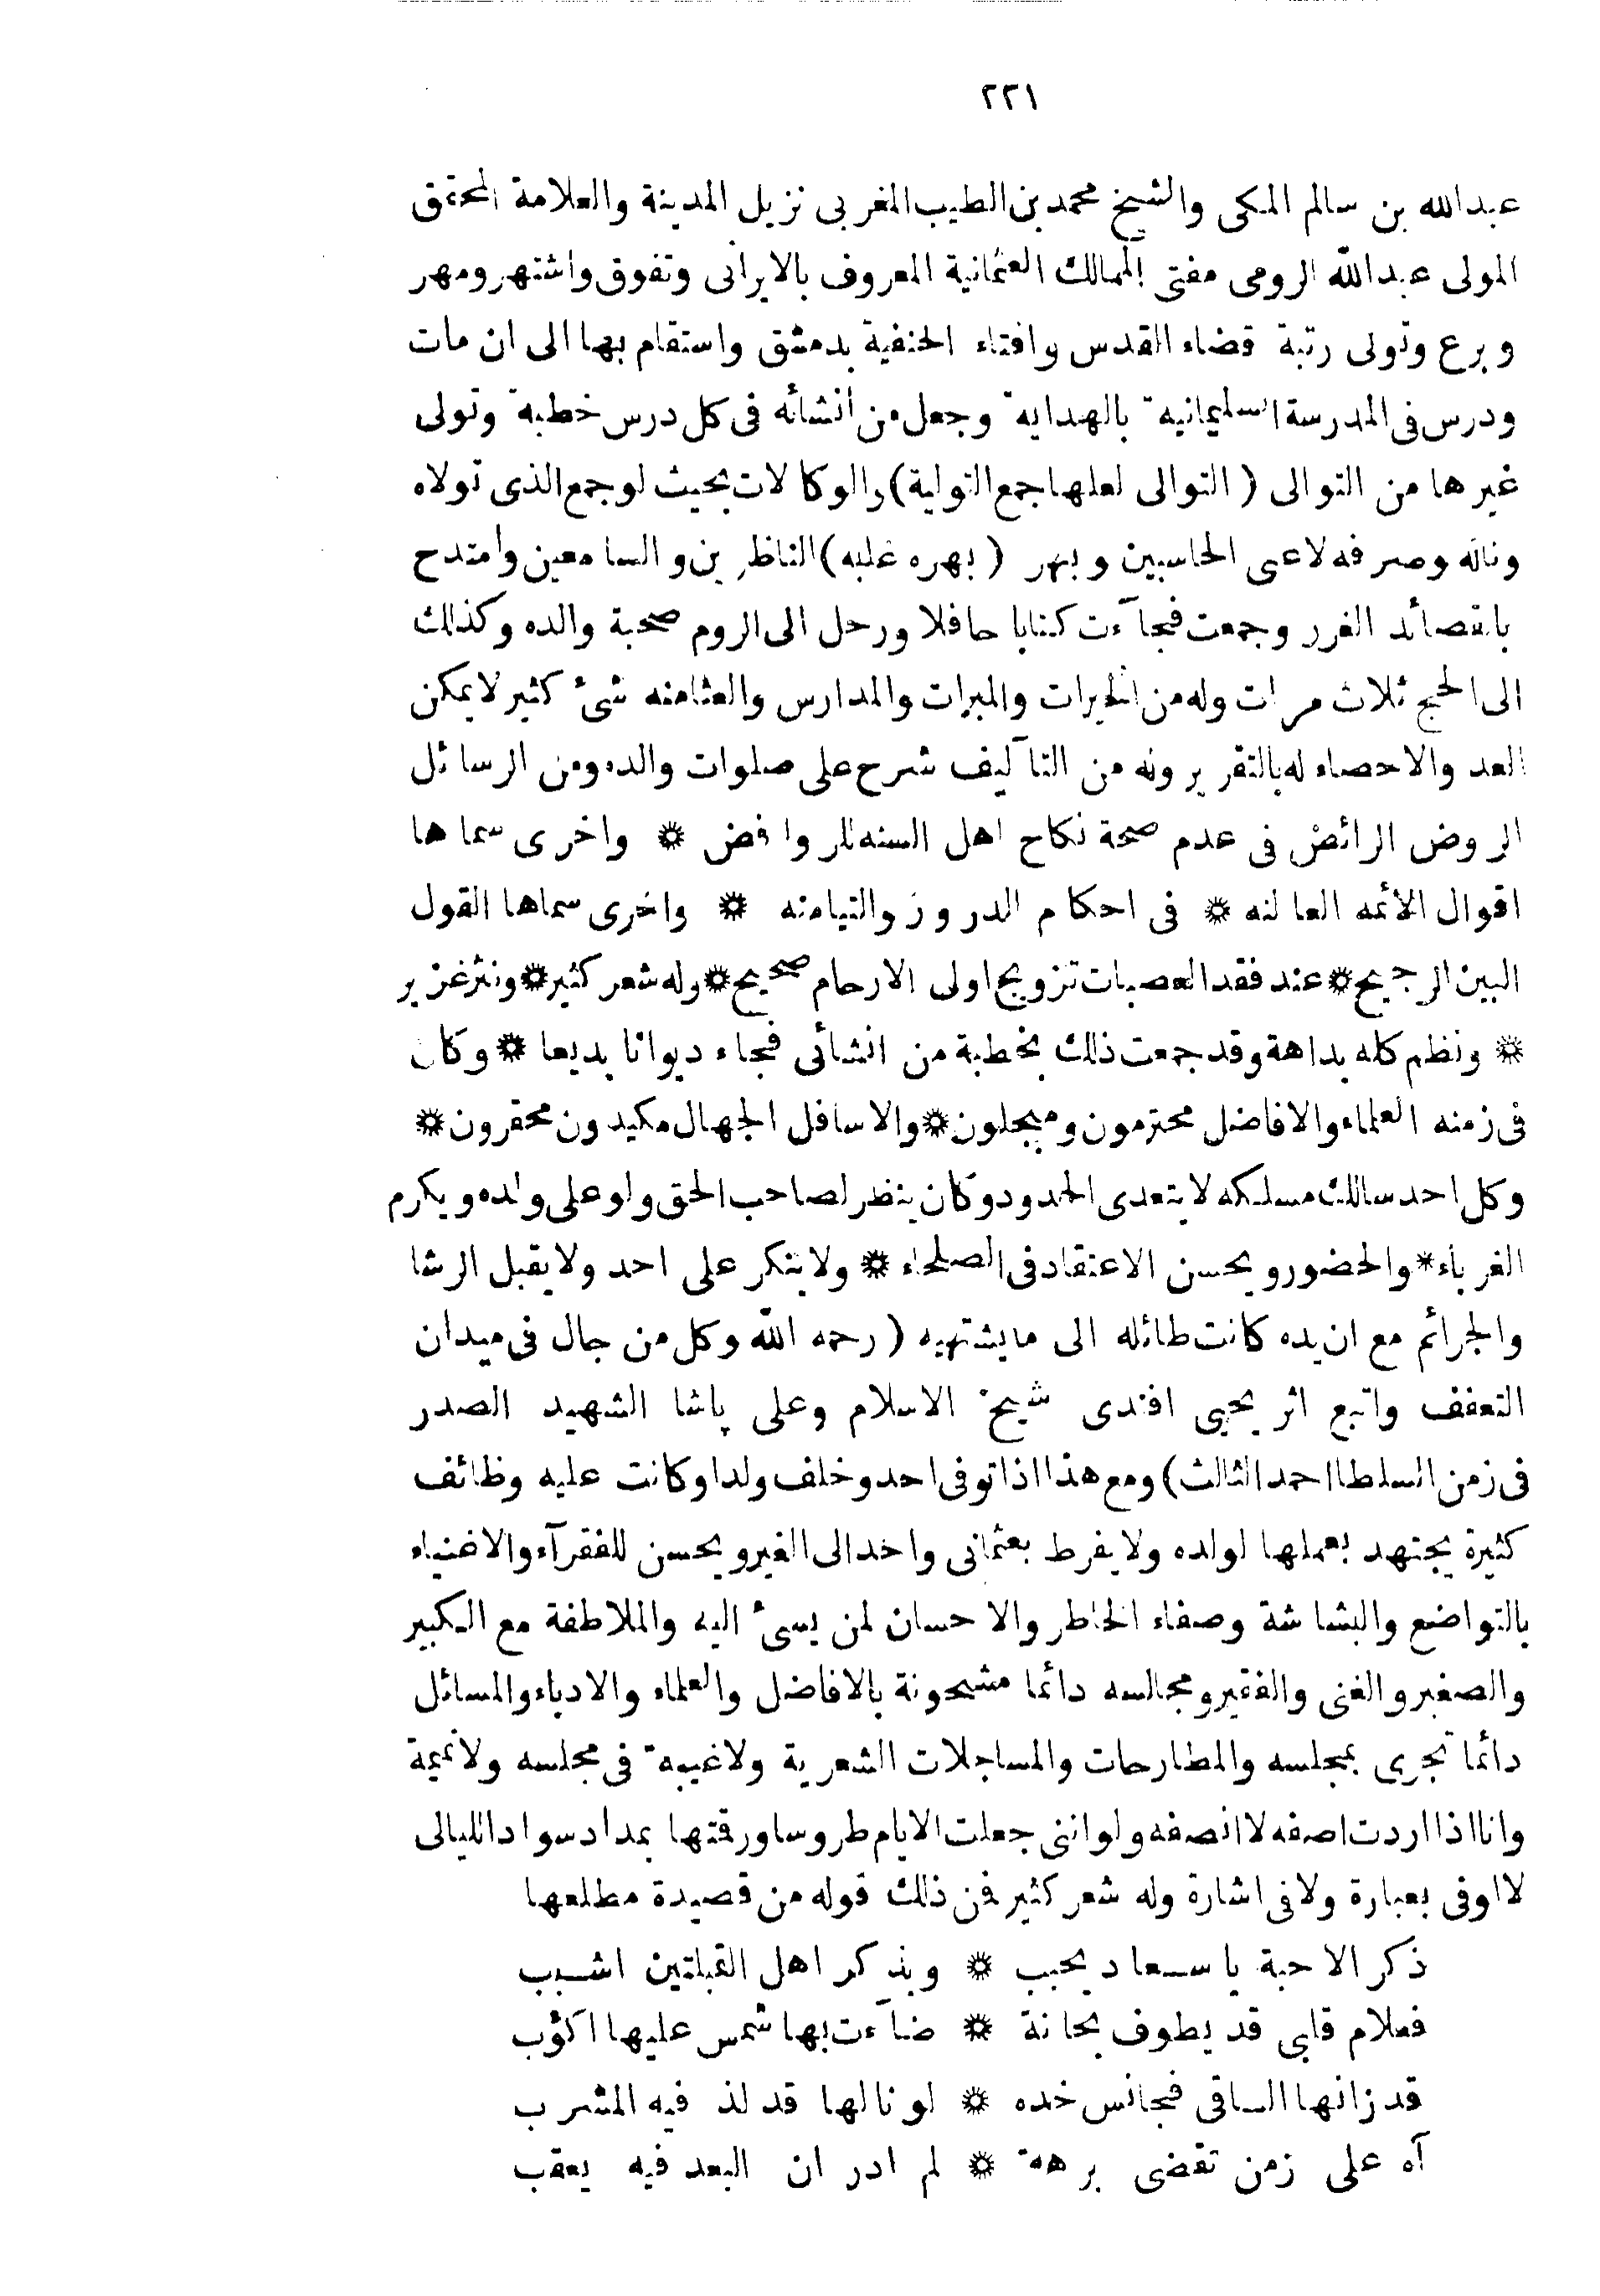 ٢٢١
عبدالله بن سالم المكى والشيخ محمد بن الطيب المغربى نزيل المدينة والعلامة المحقق
المولى عبدالله الرومى مفتى الممالك العثمانية المعروف بالايرانى وتفوق واشتهر ومهر
وبرع وتولى رتبة قضاء القدس وافتاء الحنفية بدمشق واستقام بها الى ان مات
ودرس فى المدرسة السليمانيه بالهدايه وجعل من أنشائه فى كل درس خطبة وتولى
غيرها من التوالى ( التوالى لعلها جمع التولية) والوكالات بحيث لوجمع الذى تولاه
وناله وصرفه لاعى الحاسبين وبهر ( بهره غلبه) الناظرين والسامعين وامتدح
بالقصائد الغرر وجمعت فجآءت كتابا حافلا ورحل الى الروم صحبة والده وكذلك
الى الحج ثلاث مرات وله من الخيرات والمبرات والمدارس والعثامنه شئ كثير لايمكن
العد والاحصاء له بالتقرير وله من التآليف شرح على صلوات والده ومن الرسائل
الروض الرائض فى عدم صحة نكاح اهل السنه للروافض * واخرى سماها
اقوال الأئمه العالنه * فى احكام الدروز والتيامنه * واخرى سماها القول
البين الرجيح * عند فقد العصبات تزويج اولى الارحام صحيح * وله شعر كثير * ونثر غزير
* ونظم كله بداهة وقد جمعت ذلك بخطبة من انشائى فجاء ديوانا بديعا * وكان
فى زمنه العلماء والافاضل محترمون ومبجلون * والاسافل الجهال مكيدون محقرون *
وكل احد سالك مسلكه لايتعدى الحدود وكان ينظر لصاحب الحق ولو على ولده ويكرم
الغرباء * والحضور ويحسن الاعتقاد فى الصلحاء * ولايتكر على احد ولايقبل الرشا
والجرائم مع ان يده كانت طائله الى مايشتهيه ( رحمه الله وكل من جال فى ميدان
التعفف واتبع اثر يحيى افندى شيخ الاسلام وعلى پاشا الشهيد الصدر
فى زمن السلطا احمد الثالث) ومع هذا اذا توفى احد وخلف ولدا وكانت عليه وظائف
كثيرة يجتهد بعملها لولده ولايفرط بعثمانى واحد الى الغير ويحسن للفقرآء والاغنياء
بالتواضع والبشاشة وصفاء الخاطر والاحسان لمن يسئ اليه والملاطفة مع الكبير
والصغير والغنى والفقير ومجالسه دائما مشحونة بالافاضل والعلماء والادباء والمسائل
دائما تجرى بمجلسه والمطارحات والمساجلات الشعرية ولاغيبة فى مجلسه ولانميمة
وانا اذا اردت اصفه لا انصفه ولو اننى جعلت الايام طروسا ورقتها بمداد سواد الليالى
لا اوفى بعبارة ولافى اشارة وله شعر كثير فمن ذلك قوله من قصيدة مطلعها
ذكر الاحبة ياسعاد يحبب * وبذكر اهل القبلتين اشبب
فعلام قلبى قد يطوف بحانة * ضآءت بها شمس عليها اكؤب
قد زانها الساقى فجانس خده * لونالها قد لذ فيه المشرب
آه على زمن تقضى برهة * لم ادر ان البعد فيه يعقب